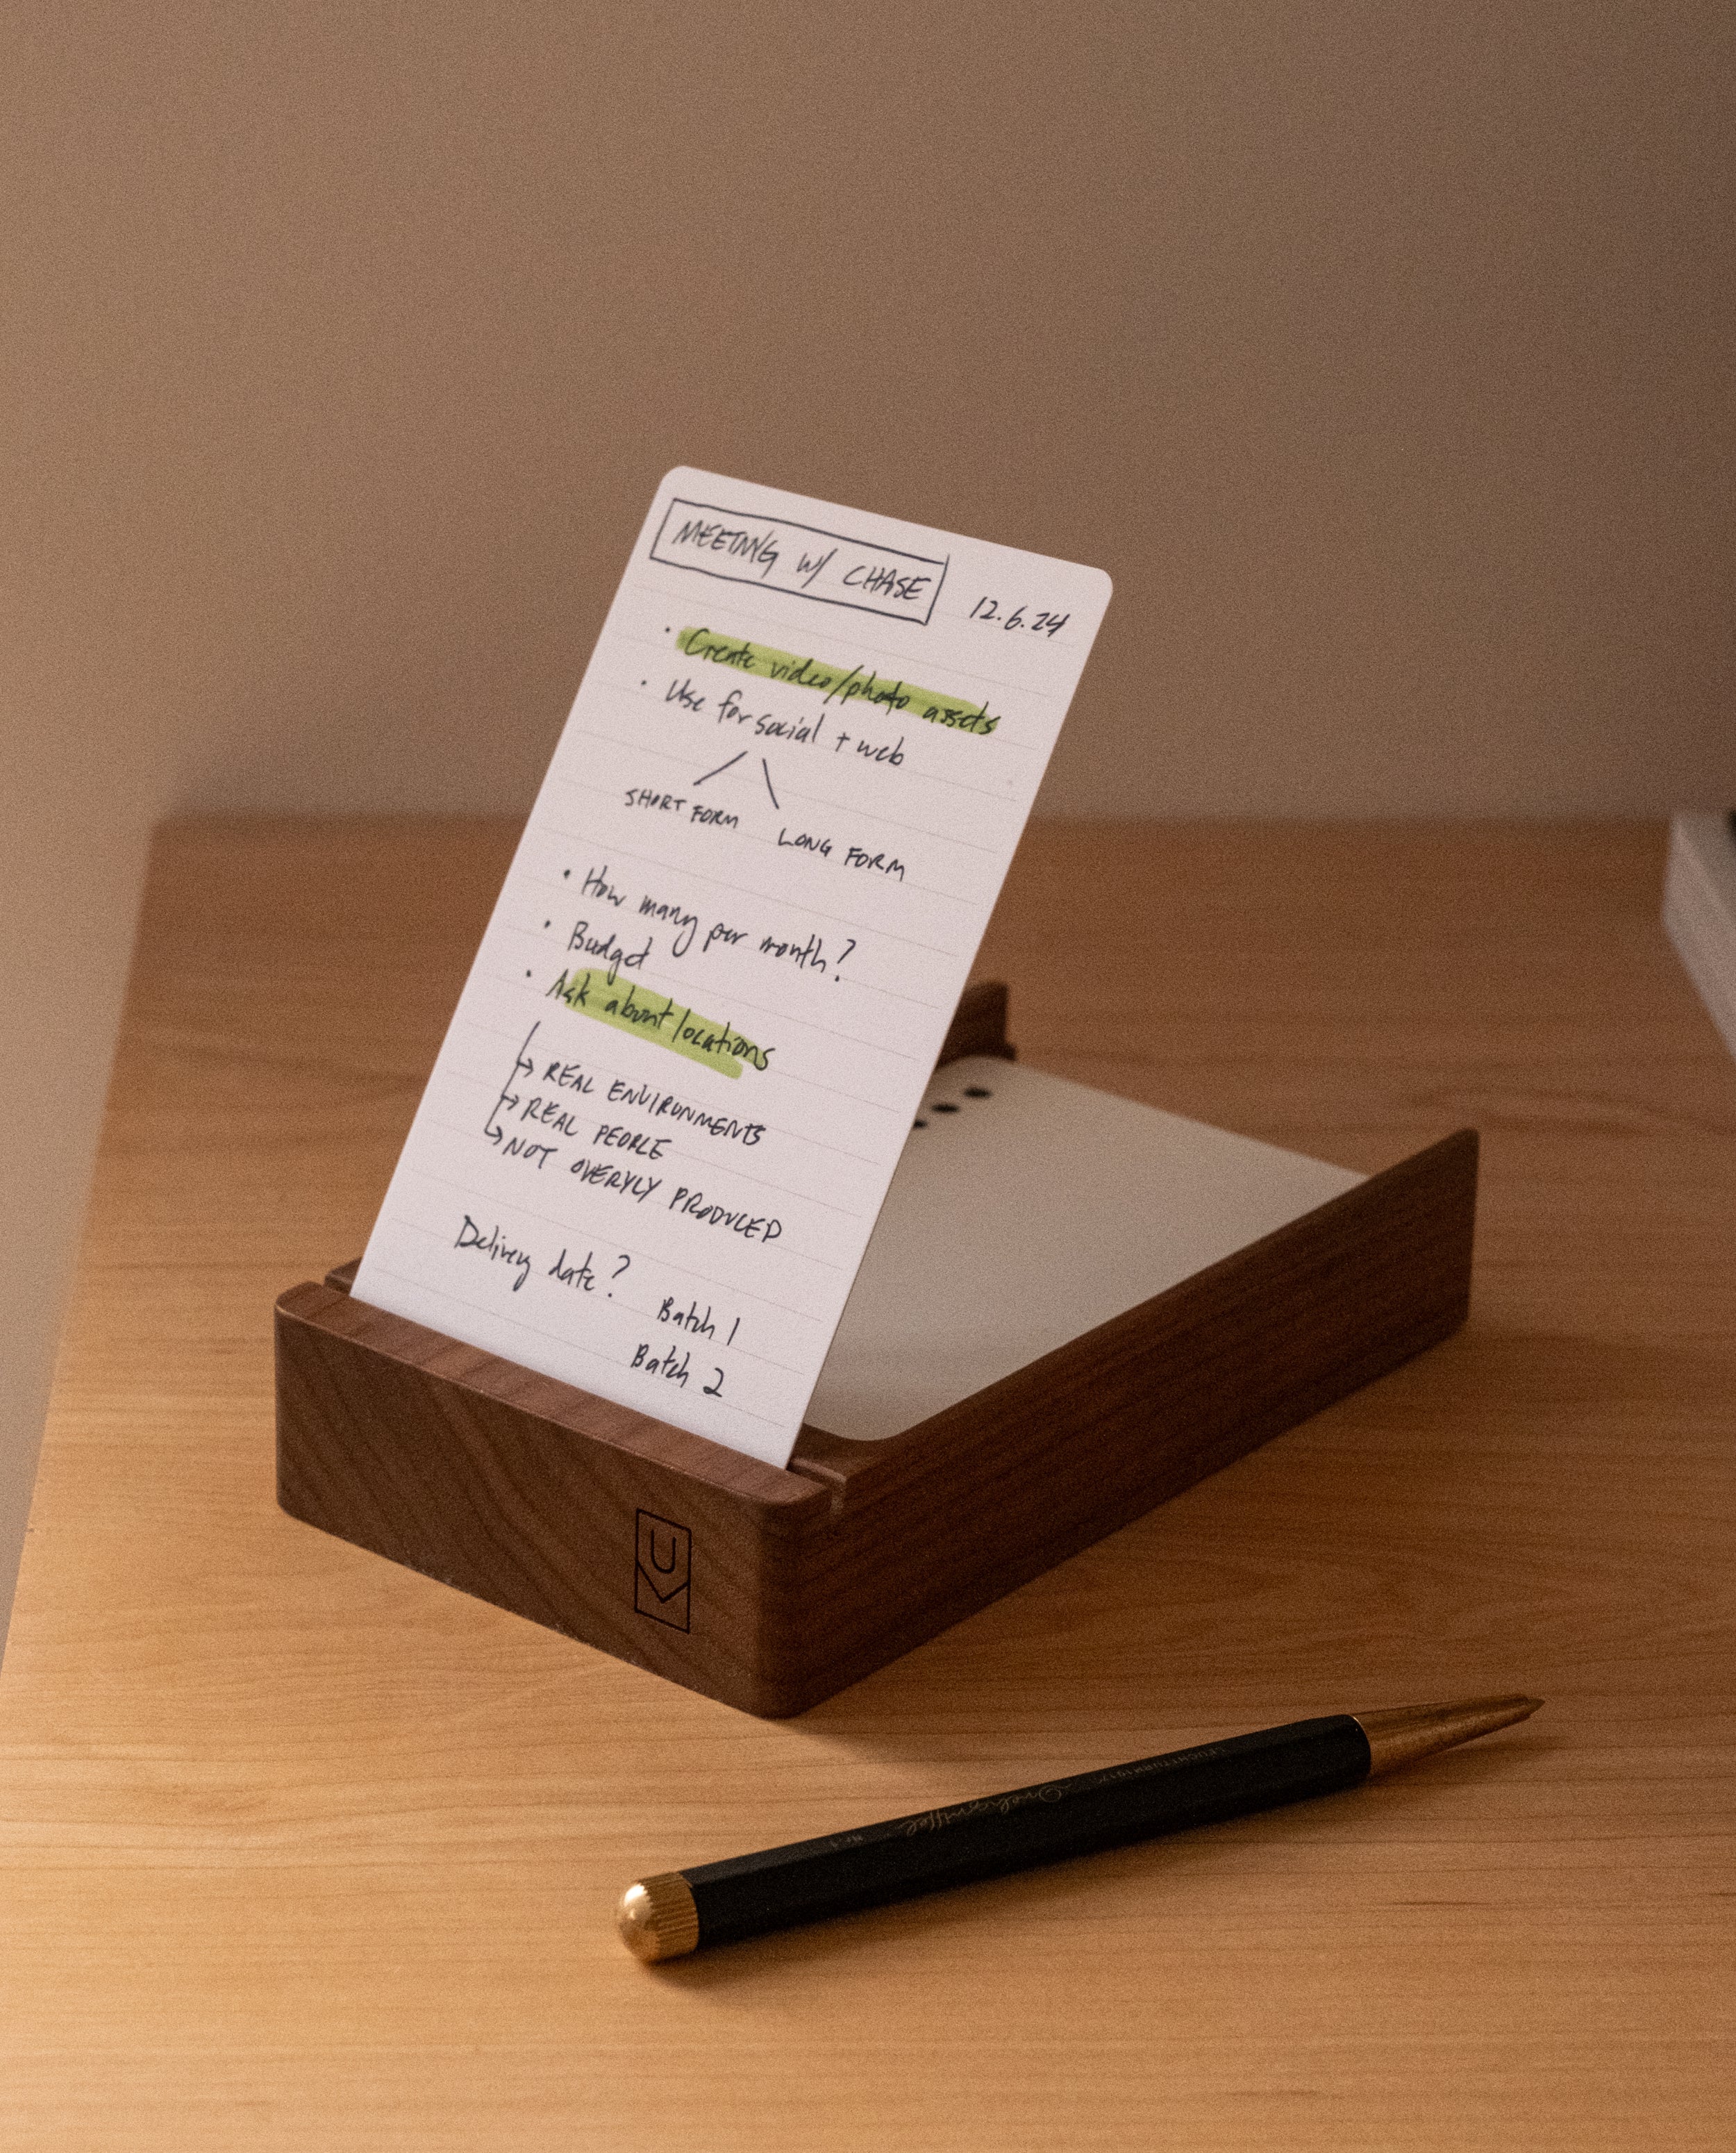 MEETING W/ CHASE
12.6.24
• Create video/photo assets
• Use for social + web
SHORT FORM
LONG FORM
• How many per month?
• Budget
• Ask about locations
→ REAL ENVIRONMENTS
→ REAL PEOPLE
→ NOT OVERYLY PRODUCED
Delivery date?
Batch 1
Batch 2
U
Nr. 1
LEUCHTTURM1917